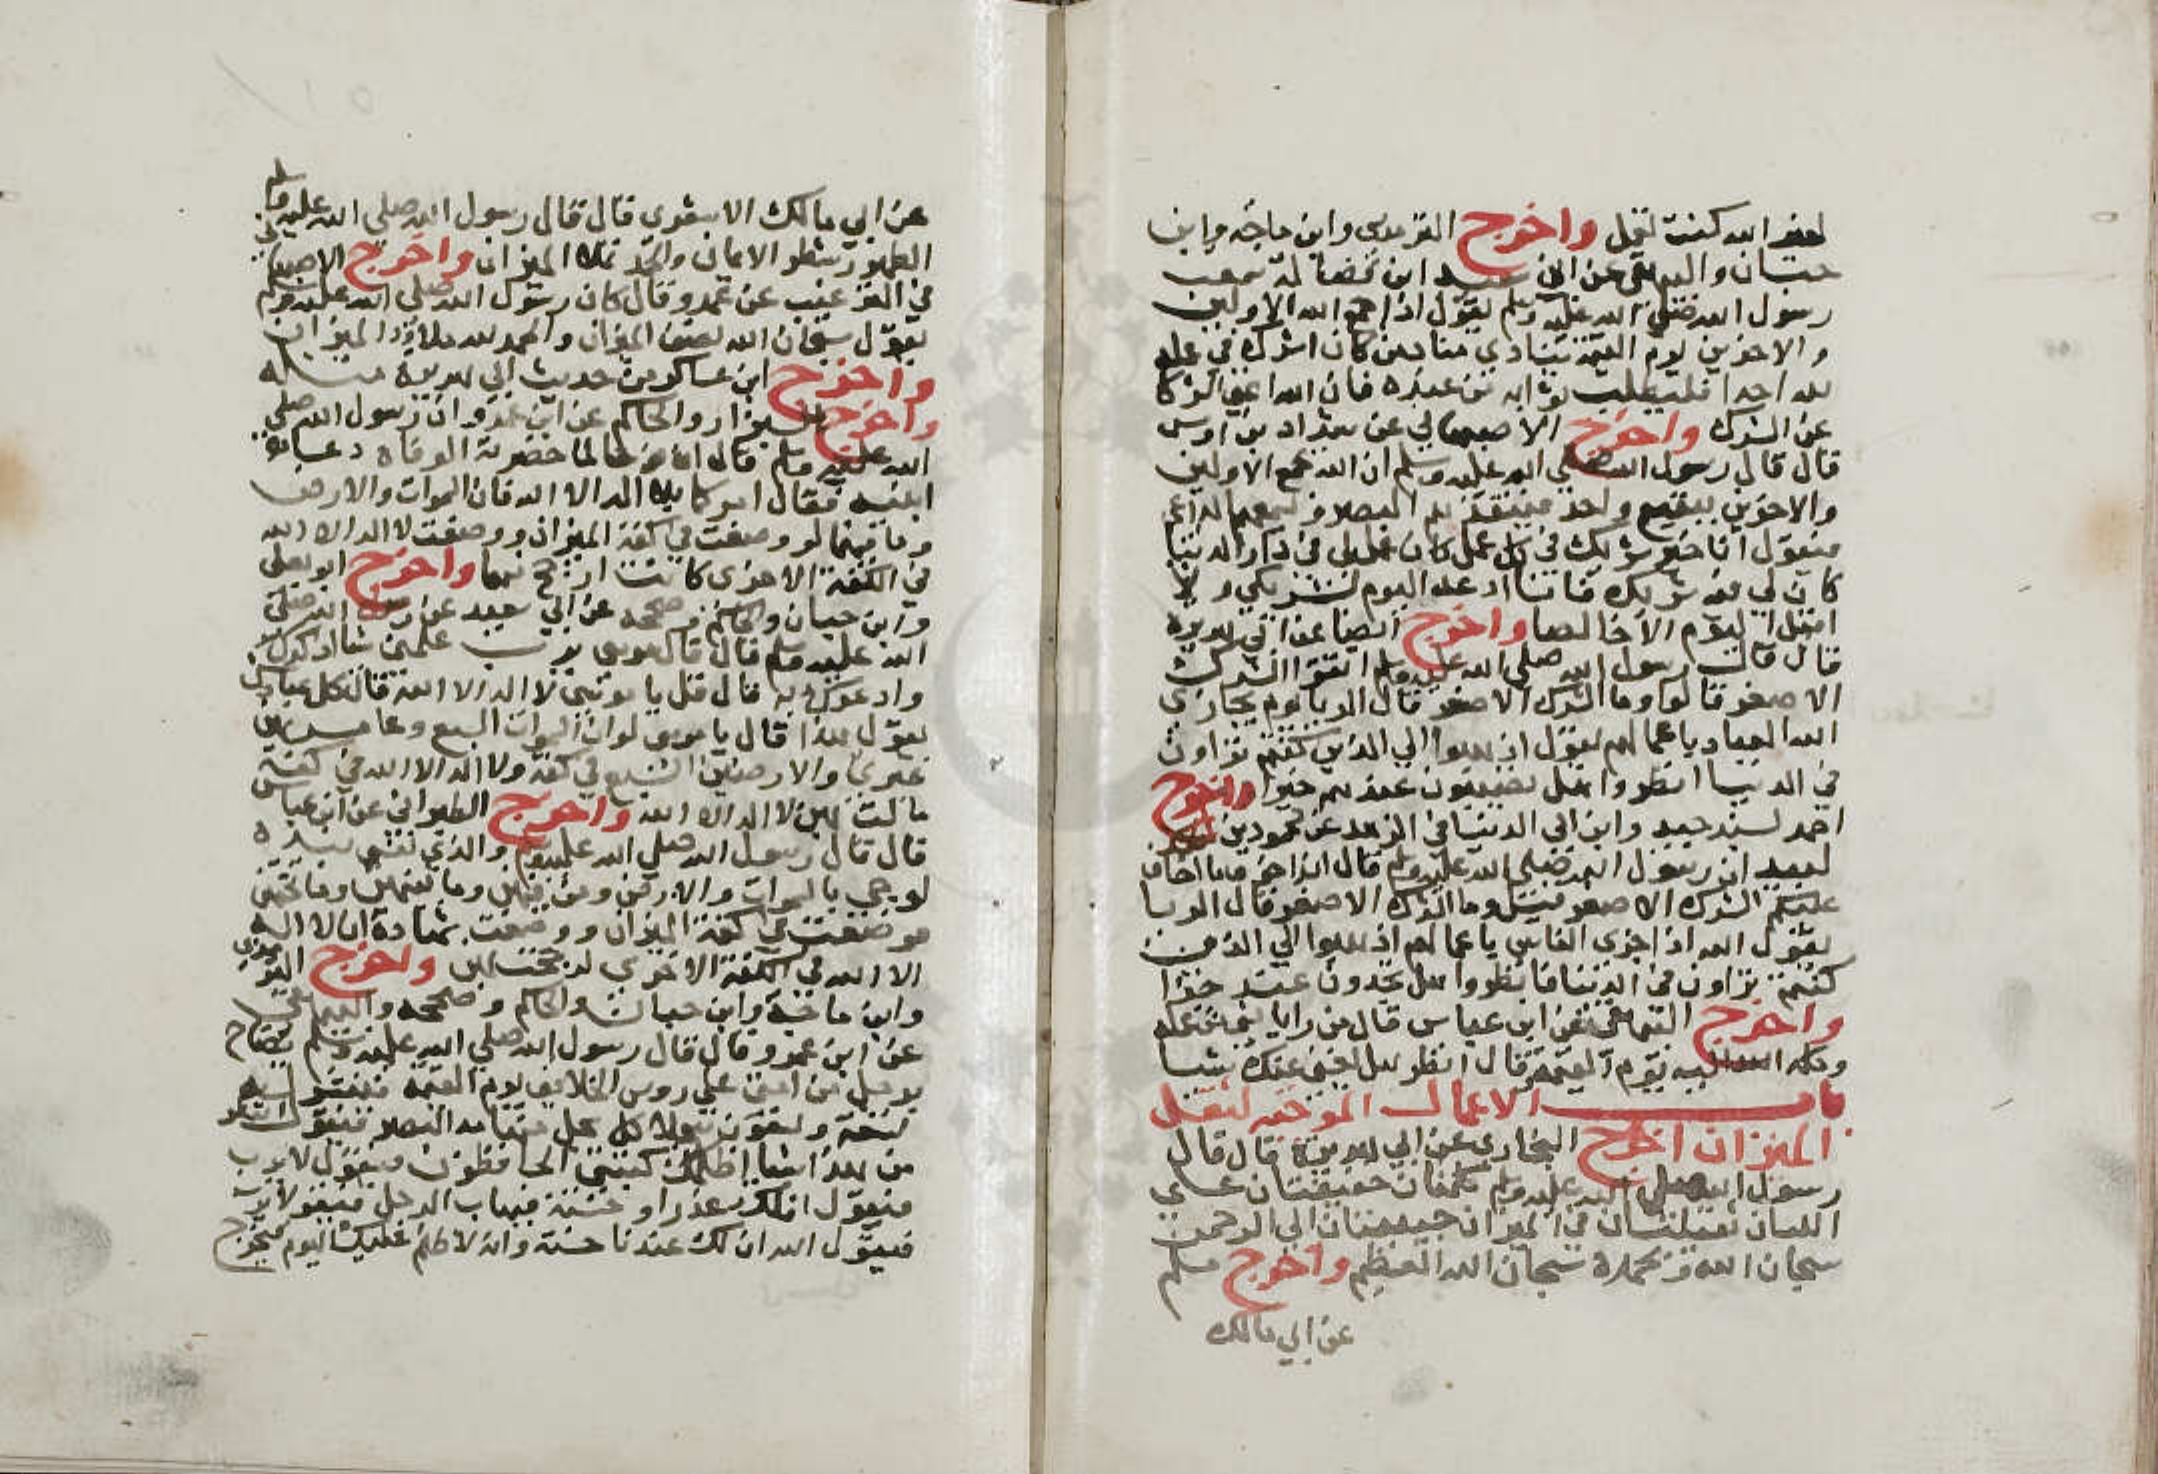 لغير الله كنت تعمل واخرج الترمذي وابن ماجه وابن
حبان والبيهقي عن ابي سعيد ابن فضالة سمعت
رسول الله صلي الله عليه وسلم يقول اذا جمع الله الاولين
والاخرين يوم القيمة ينادي مناد من كان اشرك في عمله
لله احدا فليطلب ثوابه من عنده فان الله اغني الشركا
عن الشرك واخرج الاصبهاني عن شداد بن اوس
قال قال رسول الله صلي الله عليه وسلم ان الله يجمع الاولين
والاخرين ببقيع واحد فينفذهم البصر ويسمعهم الداعي
فيقول انا خير شريك في كل عمل كان عمل لي في دار الدنيا
كان لي فيه شريك فانا ادعه اليوم لشريكي ولا
اقبل اليوم الا خالصا واخرج ايضا عن ابي هريرة
قال قال رسول الله صلي الله عليه وسلم اتقوا الشرك
الاصغر قالوا وما الشرك الاصغر قال الريا يوم يجازي
الله العباد باعمالهم يقول اذهبوا الي الذين كنتم تراون
في الدنيا انظروا هل تصيبون عندهم خيرا واخرج
احمد بسند جيد وابن ابي الدنيا في الزهد عن محمود بن
لبيد ان رسول الله صلي الله عليه وسلم قال ان اخوف ما اخاف
عليكم الشرك الاصغر قيل وما الشرك الاصغر قال الريا
يقول الله اذا جزي الناس باعمالهم اذهبوا الي الذين
كنتم تراون في الدنيا فانظروا هل تجدون عندهم خيرا
واخرج البيهقي عن ابن عباس قال من رايا بشي من عمله
وكله الله اليه يوم القيمة وقال انظر هل يغني عنك شيا
باب الاعمال الموجبه لثقل
الميزان اخرج البخاري عن ابي هريرة قال قال
رسول الله صلي الله عليه وسلم كلمتان خفيفتان علي
اللسان ثقيلتان في الميزان حبيبتان الي الرحمن
سبحان الله وبحمده سبحان الله العظيم واخرج مسلم
عن ابي مالك
عن ابي مالك الاشعري قال قال رسول الله صلي الله عليه وسلم
الطهور شطر الايمان والحمد تملا الميزان واخرج الاصبهاني
في الترغيب عن عمرو قال كان رسول الله صلي الله عليه وسلم
يقول سبحان الله نصف الميزان والحمد لله ملا الميزان
واخرج ابن عساكر من حديث ابي هريرة مثله
واخرج البزار والحاكم عن ابن عمرو ان رسول الله صلي
الله عليه وسلم قال ان نوحا لما حضرته الوفاة دعا
ابنيه فقال امركما بلا اله الا الله فان السموات والارض
وما فيهما لو وضعت في كفة الميزان ووضعت لا اله الا الله
في الكفة الاخري كانت ارجح منهما واخرج ابو يعلي
وابن حبان والحاكم وصححه عن ابي سعيد عن رسول الله صلي
الله عليه وسلم قال قال موسي يرب علمني شيا اذكرك
وادعوك به قال قل يا موسي لا اله الا الله قال كل عبادك
يقول هذا قال يا موسي لو ان السموات السبع وعامرهن
غيري والارضين السبع في كفة ولا اله الا الله في كفة
مالت بهن لا اله الا الله واخرج الطبراني عن ابن عباس
قال قال رسول الله صلي الله عليه وسلم والذي نفسي بيده
لو جي بالسموات والارض ومن فيهن وما بينهن وما تحتهن
فوضعت في كفة الميزان ووضعت شهادة ان لا اله
الا الله في الكفة الاخري لرجحت بهن واخرج الترمذي
وابن ماجة وابن حبان والحاكم وصححه والبيهقي
عن ابن عمرو قال قال رسول الله صلي الله عليه وسلم يصاح
برجل من امتي علي روس الخلايق يوم القيمة فينشر له
تسعة وتسعون سجلا كل سجل منها مد البصر فيقول اتنكر
من هذا شيا اظلمك كتبتي الحافظون فيقول لا يرب
فيقول افلك عذر او حسنة فيهاب الرجل فيقول لا يرب
فيقول الله ان لك عندنا حسنة وانه لا ظلم عليك اليوم فيخرج